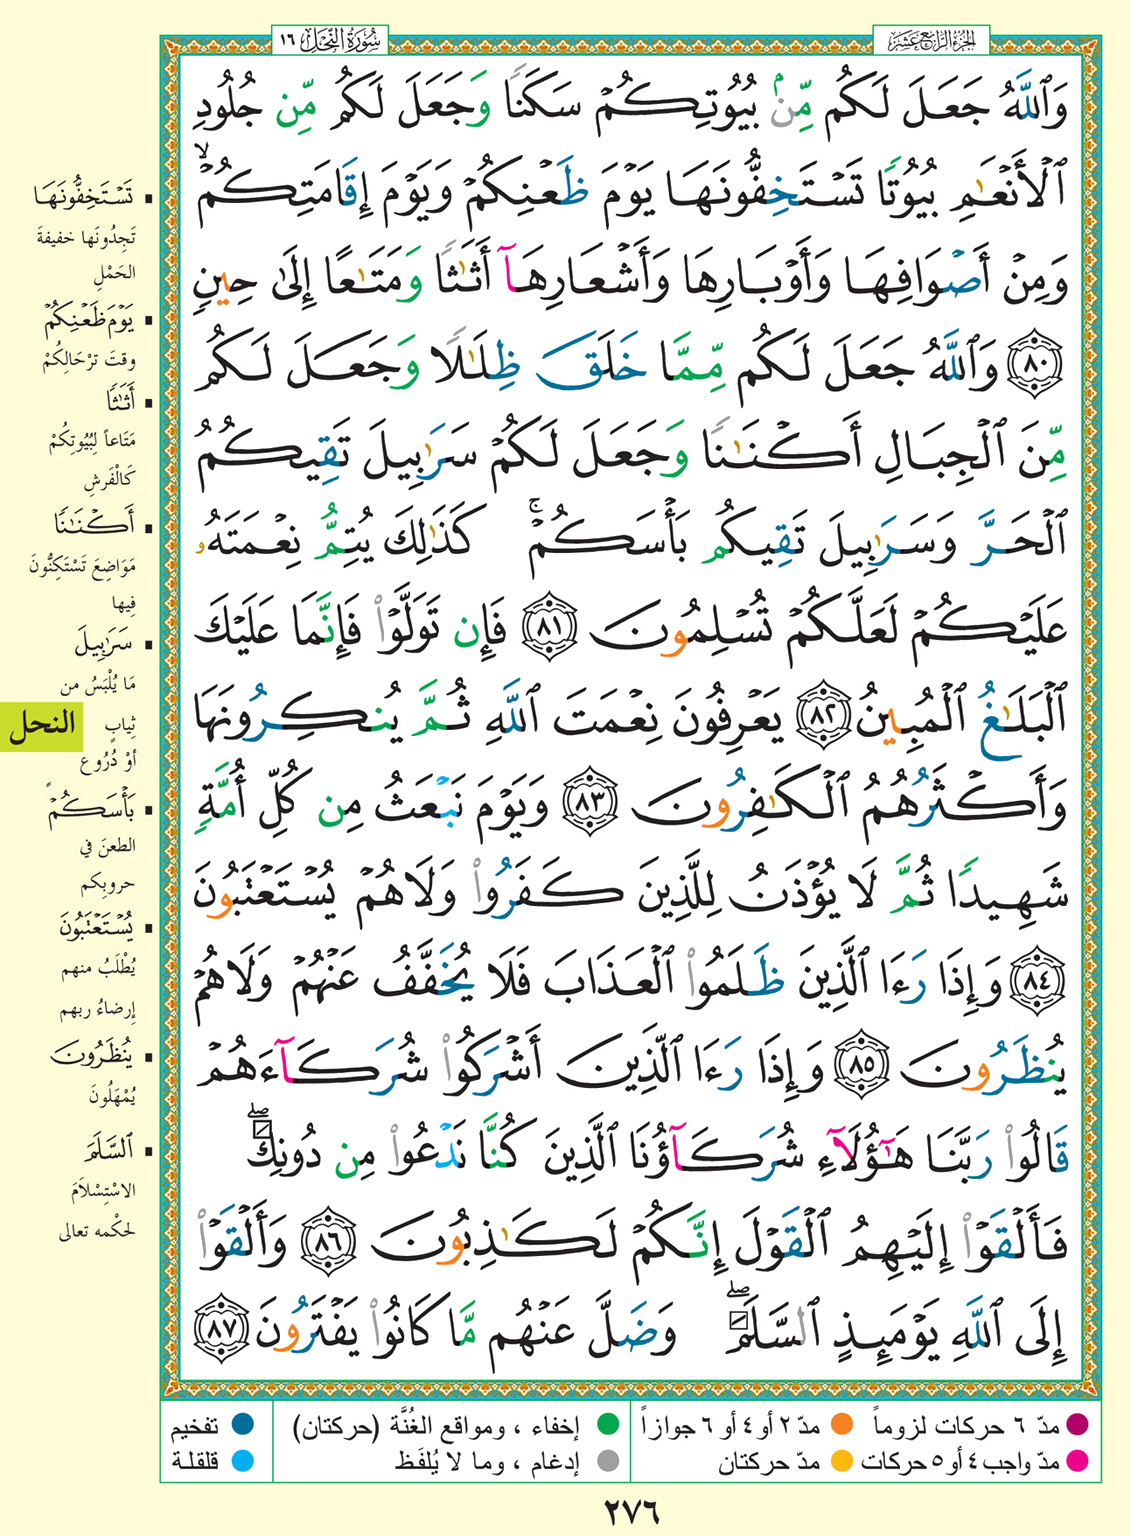 الجزء الرابع عشر
سُورَةُ النَّحْلِ ١٦
وَٱللَّهُ جَعَلَ لَكُم مِّنۢ بُيُوتِكُمْ سَكَنًا وَجَعَلَ لَكُم مِّن جُلُودِ
ٱلْأَنْعَٰمِ بُيُوتًا تَسْتَخِفُّونَهَا يَوْمَ ظَعْنِكُمْ وَيَوْمَ إِقَامَتِكُمْ ۙ
وَمِنْ أَصْوَافِهَا وَأَوْبَارِهَا وَأَشْعَارِهَآ أَثَٰثًا وَمَتَٰعًا إِلَىٰ حِينٍ
٨٠ وَٱللَّهُ جَعَلَ لَكُم مِّمَّا خَلَقَ ظِلَٰلًا وَجَعَلَ لَكُم
مِّنَ ٱلْجِبَالِ أَكْنَٰنًا وَجَعَلَ لَكُمْ سَرَٰبِيلَ تَقِيكُمُ
ٱلْحَرَّ وَسَرَٰبِيلَ تَقِيكُم بَأْسَكُمْ ۚ كَذَٰلِكَ يُتِمُّ نِعْمَتَهُۥ
عَلَيْكُمْ لَعَلَّكُمْ تُسْلِمُونَ ٨١ فَإِن تَوَلَّوْا۟ فَإِنَّمَا عَلَيْكَ
ٱلْبَلَٰغُ ٱلْمُبِينُ ٨٢ يَعْرِفُونَ نِعْمَتَ ٱللَّهِ ثُمَّ يُنكِرُونَهَا
وَأَكْثَرُهُمُ ٱلْكَٰفِرُونَ ٨٣ وَيَوْمَ نَبْعَثُ مِن كُلِّ أُمَّةٍ
شَهِيدًا ثُمَّ لَا يُؤْذَنُ لِلَّذِينَ كَفَرُوا۟ وَلَا هُمْ يُسْتَعْتَبُونَ
٨٤ وَإِذَا رَءَا ٱلَّذِينَ ظَلَمُوا۟ ٱلْعَذَابَ فَلَا يُخَفَّفُ عَنْهُمْ وَلَا هُمْ
يُنظَرُونَ ٨٥ وَإِذَا رَءَا ٱلَّذِينَ أَشْرَكُوا۟ شُرَكَآءَهُمْ
قَالُوا۟ رَبَّنَا هَٰٓؤُلَآءِ شُرَكَآؤُنَا ٱلَّذِينَ كُنَّا نَدْعُوا۟ مِن دُونِكَ ۖ
فَأَلْقَوْا۟ إِلَيْهِمُ ٱلْقَوْلَ إِنَّكُمْ لَكَٰذِبُونَ ٨٦ وَأَلْقَوْا۟
إِلَى ٱللَّهِ يَوْمَئِذٍ ٱلسَّلَمَ ۖ وَضَلَّ عَنْهُم مَّا كَانُوا۟ يَفْتَرُونَ ٨٧
تَسْتَخِفُّونَهَا
تَجِدُونَها خفيفةَ
الحَمْلِ
يَوْمَ ظَعْنِكُمْ
وقتَ ترْحَالِكُمْ
أَثَٰثًا
مَتَاعاً لِبُيُوتِكُمْ
كَالْفَرشِ
أَكْنَٰنًا
مَوَاضِعَ تَسْتَكِنُّونَ
فيها
سَرَٰبِيلَ
مَا يُلْبَسُ من
ثِيابٍ
أوْ دُرُوع
بَأْسَكُمْ
الطعنَ في
حروبِكم
يُسْتَعْتَبُونَ
يُطْلَبُ منهم
إِرضاءُ ربهم
يُنظَرُونَ
يُمْهَلُونَ
ٱلسَّلَمَ
الاسْتِسْلاَمَ
لحكْمه تعالى
النحل
مدّ ٦ حركات لزوماً
مدّ ٢ أو ٤ أو ٦ جوازاً
إخفاء ، ومواقع الغُنَّة (حركتان)
تفخيم
مدّ واجب ٤ أو ٥ حركات
مدّ حركتان
إدغام ، وما لا يُلفَظ
قلقلة
٢٧٦